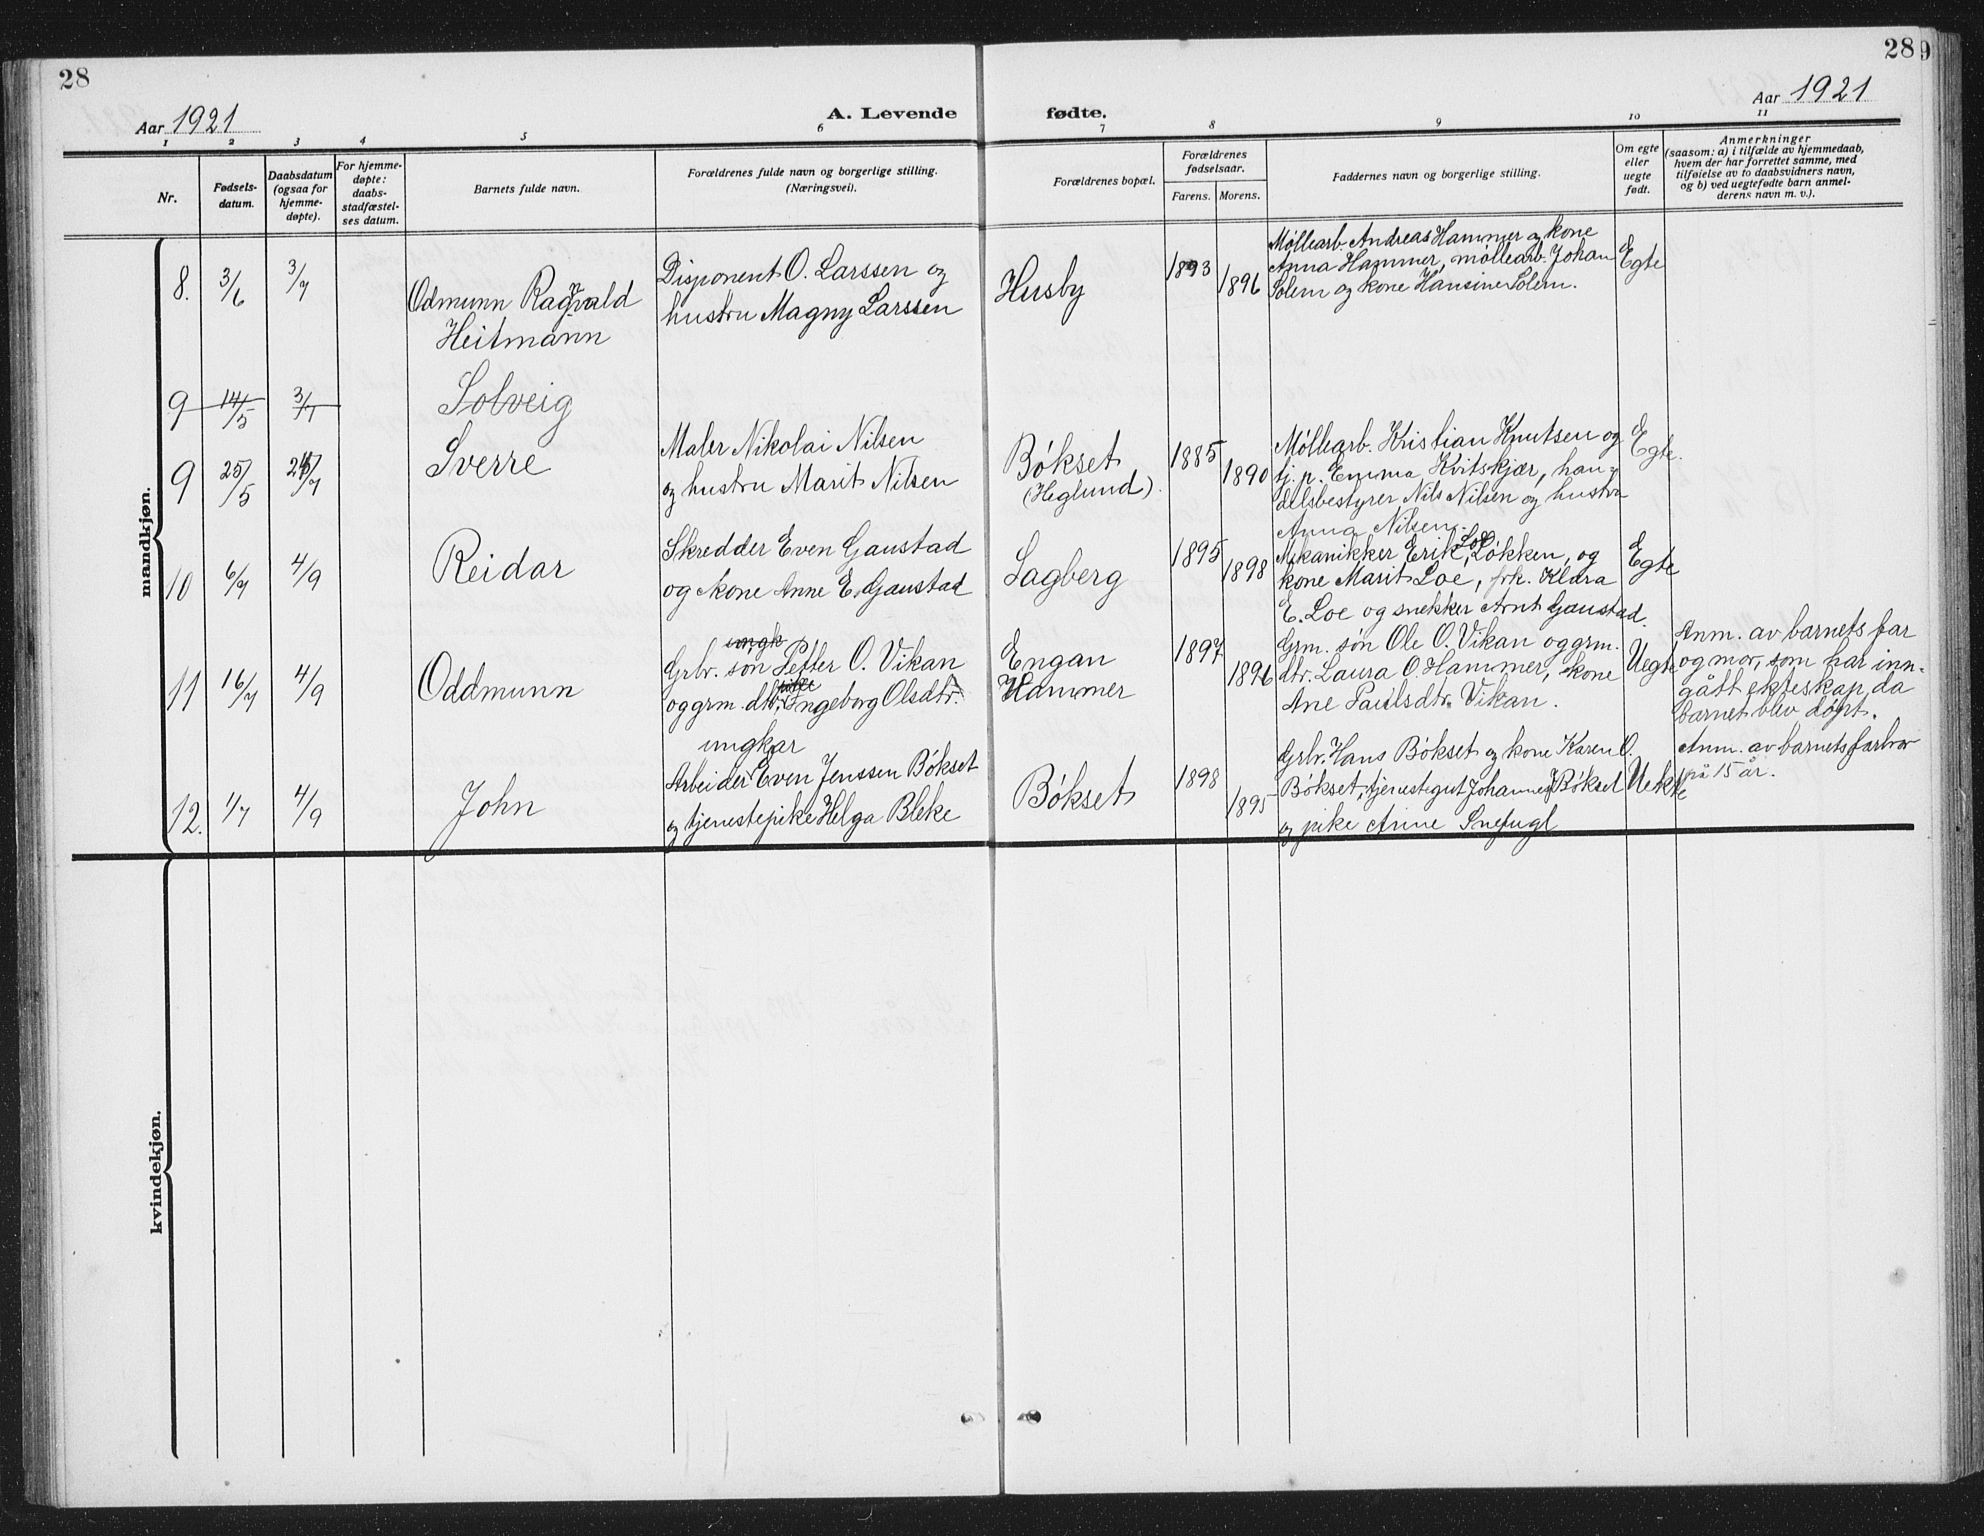 28
28 9
Aar 1921
A. Levende fødte.
Aar 1921
1 2 3 4 5 6 7 8 9 10 11
Nr.
Fødsels-
datum.
Daabsdatum
(ogsaa for
hjemme-
døpte).
For hjemme-
døpte:
daabs-
stadfæstel-
ses datum.
Barnets fulde navn.
Forældrenes fulde navn og borgerlige stilling.
(Næringsvei).
Forældrenes bopæl.
Forældrenes
fødselsaar.
Farens. Morens.
Faddernes navn og borgerlige stilling.
Om egte
eller
uegte
født.
Anmerkninger
(saasom: a) i tilfælde av hjemmedaab,
hvem der har forrettet samme, med
tilføielse av to daabsvidners navn,
og b) ved uegtefødte barn anmel-
derens navn m. v.).
mandkjøn.
8. 3/6 3/7
Odmunn Ragnvald
Heitmann
Disponent O. Larssen og
hustru Magny Larssen
Husby
1893
1896
Møllearb. Andreas Hammer og kone
Anna Hammer, møllearb. Johan
Solem og kone Hansine Solem.
Egte
9 14/5 3/7
Solveig
9 25/5 /7
Sverre
Maler Nikolai Nilsen
og hustru Marit Nilsen
Bókset
(Heglund).
1885
1890
Møllearb. Kristian Knutsen og
tj. p. Emma Kvitskjær, han-
delsbestyrer Nils Nilsen og hustru
Anna Nilsen.
Egte.
10 6/7 4/9
Reidar
Skredder Even Gaustad
og kone Anne E. Gaustad
Lagberg
1895
1898
Loe
Mekanikker Erik Løkken, og
kone Marit Loe, frk. Klara
E. Loe og snekker Arnt Gaustad.
Egte
11 16/7 4/9
Oddmunn
ungk
Grbr. søn Petter O. Vikan
pike
og grm. dtr. Ingeborg Olsdtr.
Engan
Hammer
1897
1896
Grm. søn Ole O. Vikan og grm.
dtr. Laura O. Hammer, kone
Ane Paulsdtr. Vikan.
Uegte
Anm. av barnets far
og mor, som har inn-
gått ekteskap, da
barnet blev døpt.
12. 1/7 4/9
John
ungkar
Arbeider Even Jenssen Bókset
og tjenestepike Helga Bleke
Bókset
1898
1895
Grbr. Hans Bókset og kone Karen O.
Bókset, tjenestegut Johannes J Bókset
og pike Anne Snefugl
Uekte
Anm. av barnets farbror
på 15 år.
kvindekjøn.